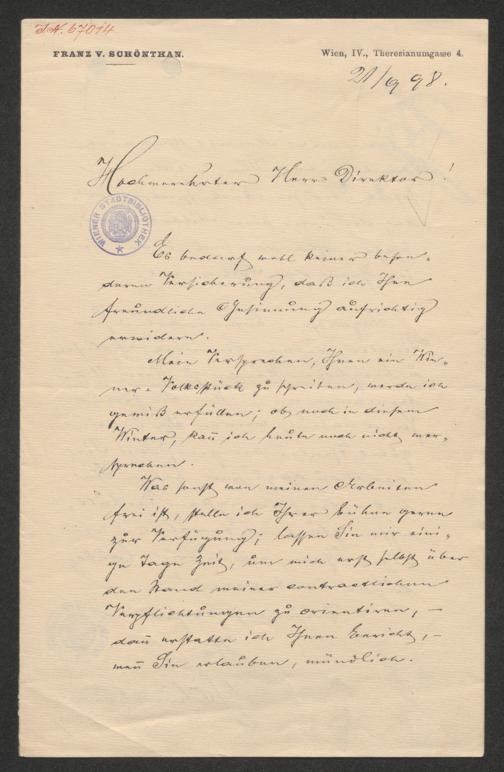 J.N. 67014
FRANZ V. SCHÖNTHAN.
Wien, IV., Theresianumgasse 4.
21/9 98.
Hochverehrter Herr Direktor!
WIENER STADTBIBLIOTHEK
Es bedarf wohl keiner beson-
deren Versicherung, daß ich Ihre
freundliche Gesinnung aufrichtig
erwidere.
Mein Versprechen, Ihnen ein Wie-
ner-Volksstück zu schreiben, werde ich
gewiß erfüllen; ob noch in diesem
Winter, kann̄ ich heute noch nicht ver-
sprechen.
Was sonst von meinen Arbeiten
frei ist, stelle ich Ihrer Bühne gerne
zur Verfügung; lassen Sie mir eini-
ge Tage Zeit, um mich erst selbst über
den Stand meiner contractlichen
Verpflichtungen zu orientiren, –
dan̄ erstatte ich Ihnen Bericht, –
wen̄ Sie erlauben, mündlich.